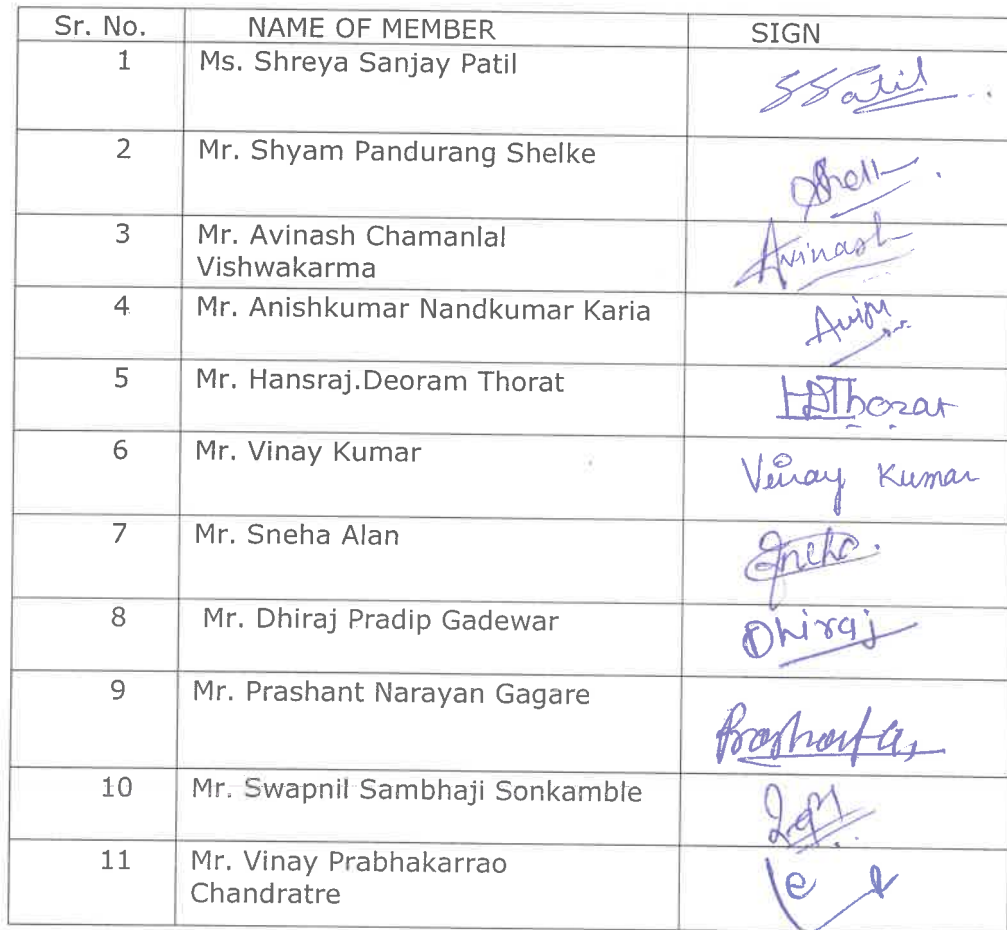 Sr. No. NAME OF MEMBER SIGN
1 Ms. Shreya Sanjay Patil SSatil
2 Mr. Shyam Pandurang Shelke
3 Mr. Avinash Chamanlal Avinash
Vishwakarma
4 Mr. Anishkumar Nandkumar Karia
5 Mr. Hansraj.Deoram Thorat HDThorat
6 Mr. Vinay Kumar Vinay Kumar
7 Mr. Sneha Alan Sneha.
8 Mr. Dhiraj Pradip Gadewar Dhiraj
9 Mr. Prashant Narayan Gagare
10 Mr. Swapnil Sambhaji Sonkamble
11 Mr. Vinay Prabhakarrao
Chandratre